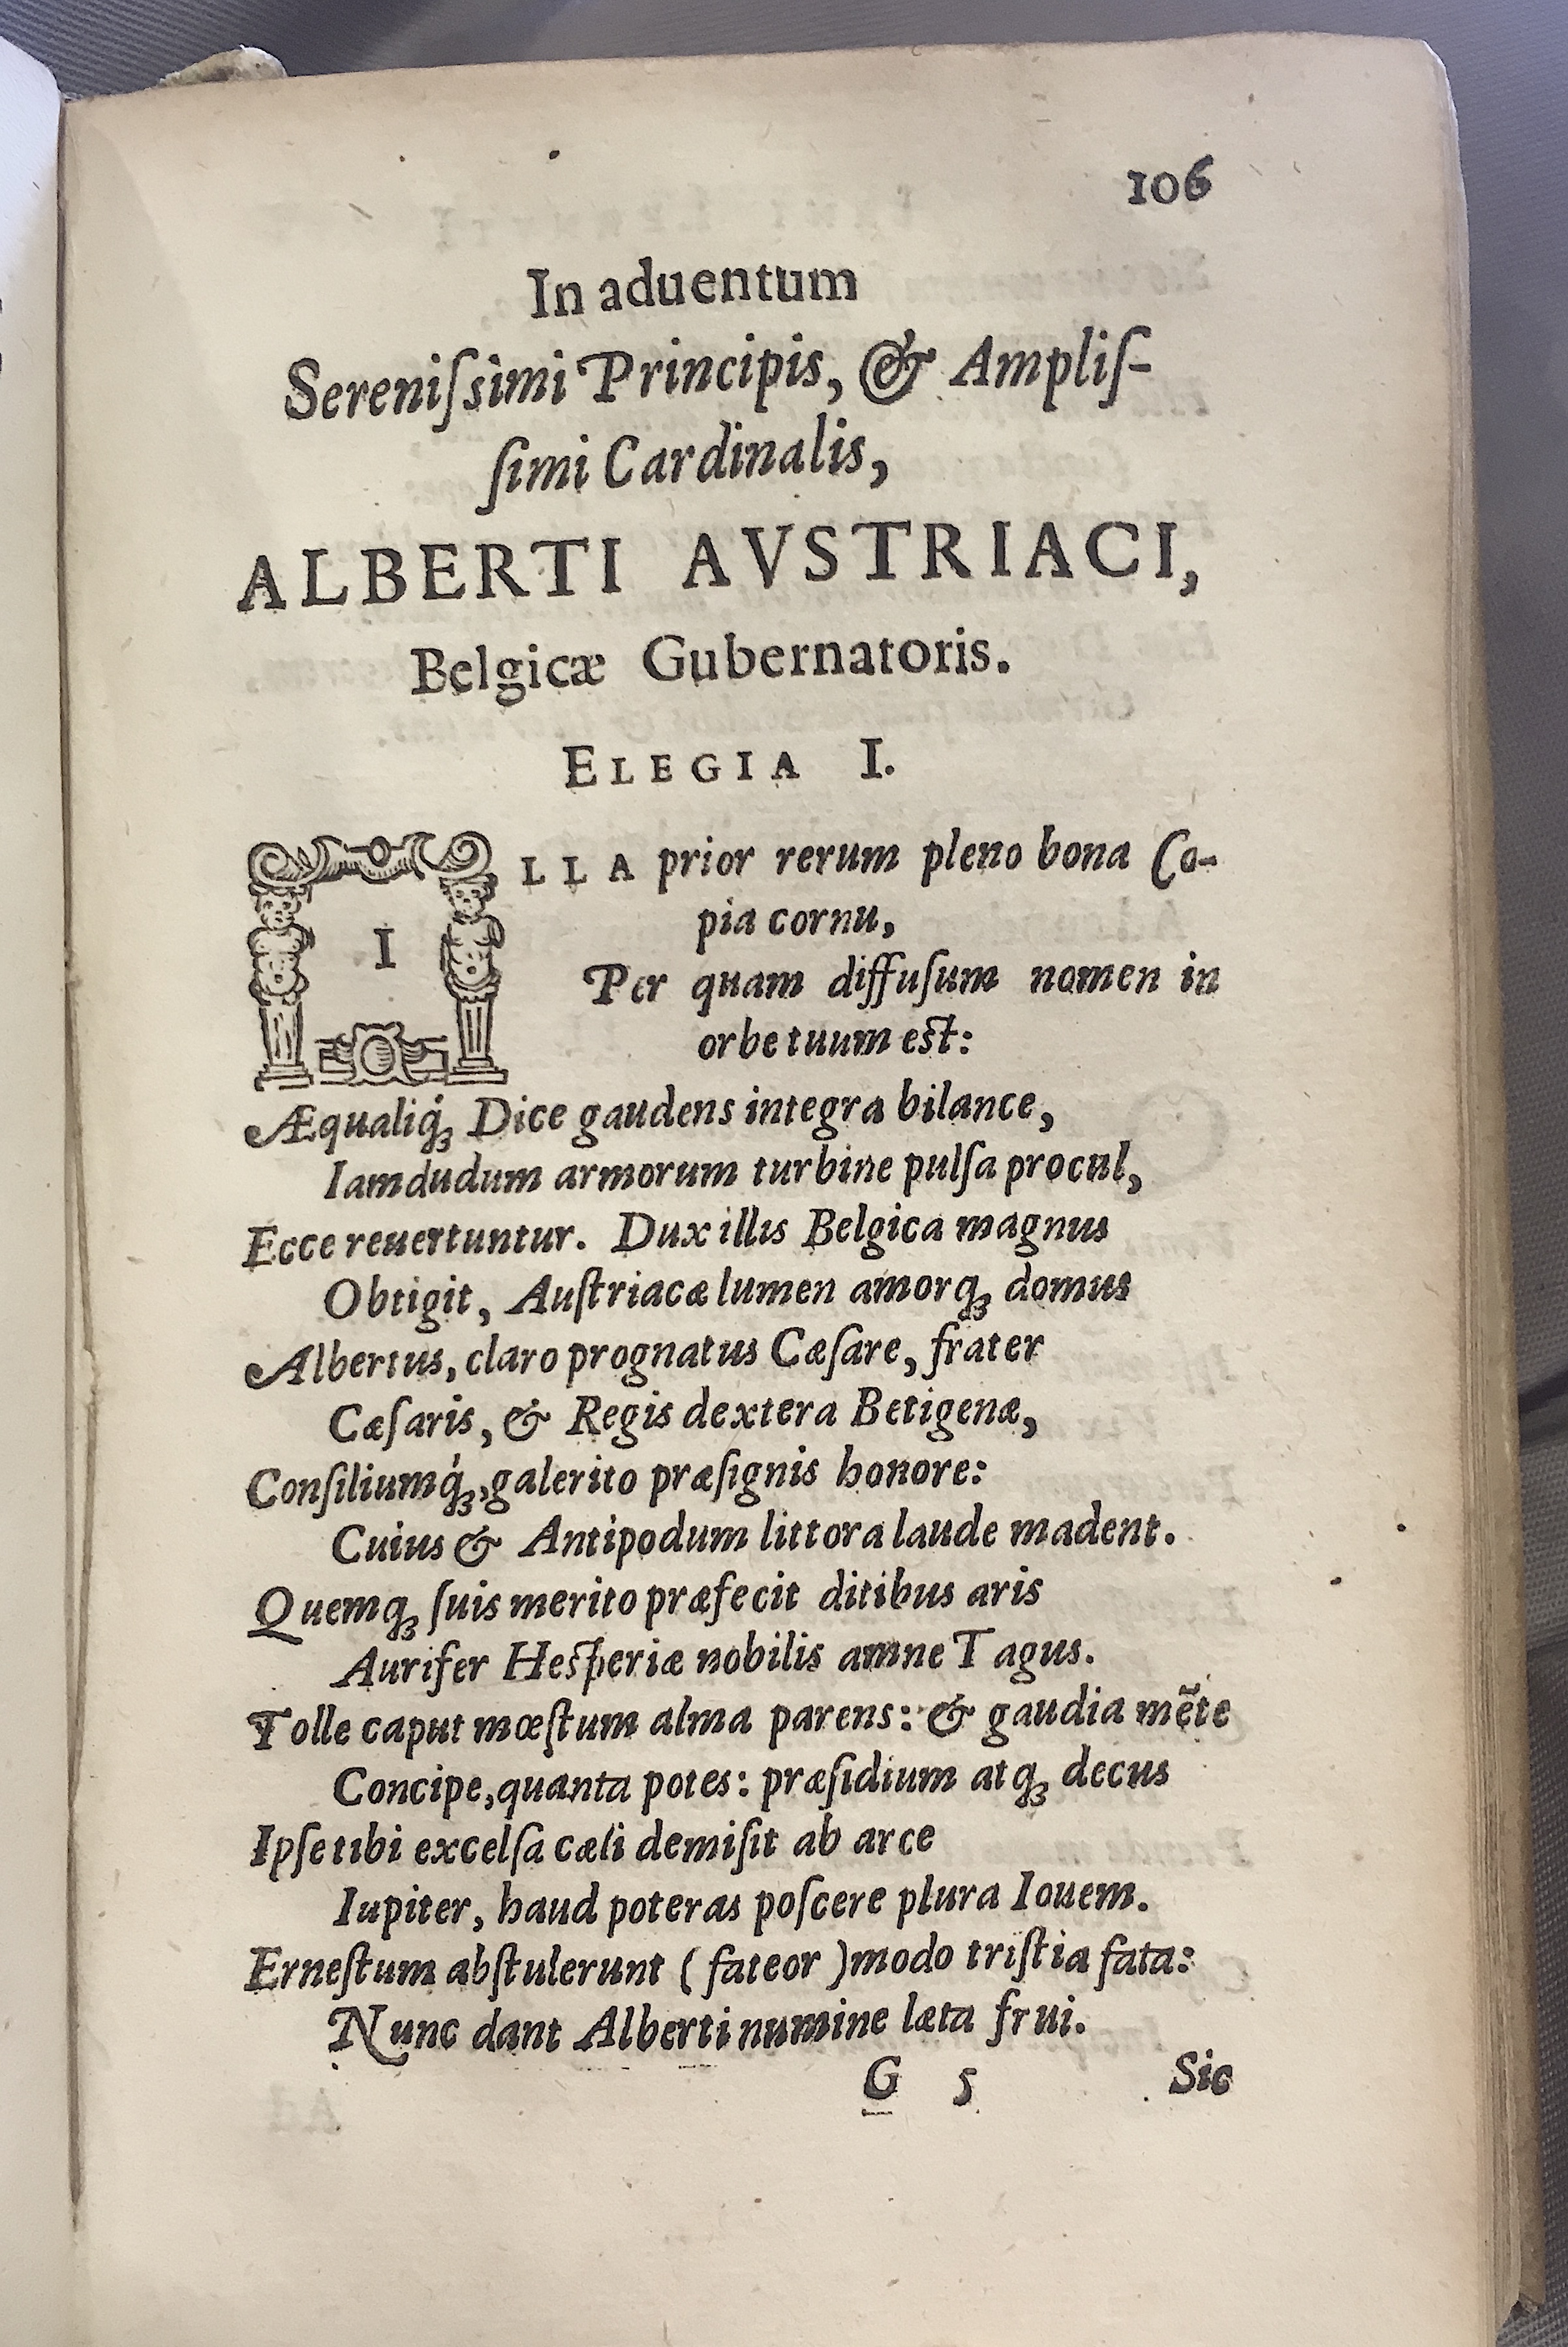 106
In aduentum
Sereniſsimi Principis, & Ampliſ-
ſimi Cardinalis,
ALBERTI AVSTRIACI,
Belgicæ Gubernatoris.
ELEGIA I.
ILLA prior rerum pleno bona Co-
pia cornu,
Per quam diffuſum nomen in
orbe tuum est:
Æqualiq́ꝫ Dice gaudens integra bilance,
Iamdudum armorum turbine pulſa procul,
Ecce reuertuntur. Dux illis Belgica magnus
Obtigit, Auſtriacæ lumen amorqꝫ domus
Albertus, claro prognatus Cæſare, frater
Cæſaris, & Regis dextera Betigenæ,
Conſiliumq́ꝫ, galerito præſignis honore:
Cuius & Antipodum littora laude madent.
Quemqꝫ ſuis merito præfecit ditibus aris
Aurifer Heſperiæ nobilis amne Tagus.
Tolle caput mœſtum alma parens: & gaudia mẽte
Concipe, quanta potes: præſidium atqꝫ decus
Ipſe tibi excelſa cæli demiſit ab arce
Iupiter, haud poteras poſcere plura Iouem.
Erneſtum abſtulerunt (fateor) modo triſtia fata:
Nunc dant Alberti numine læta frui.
G 5 Sic